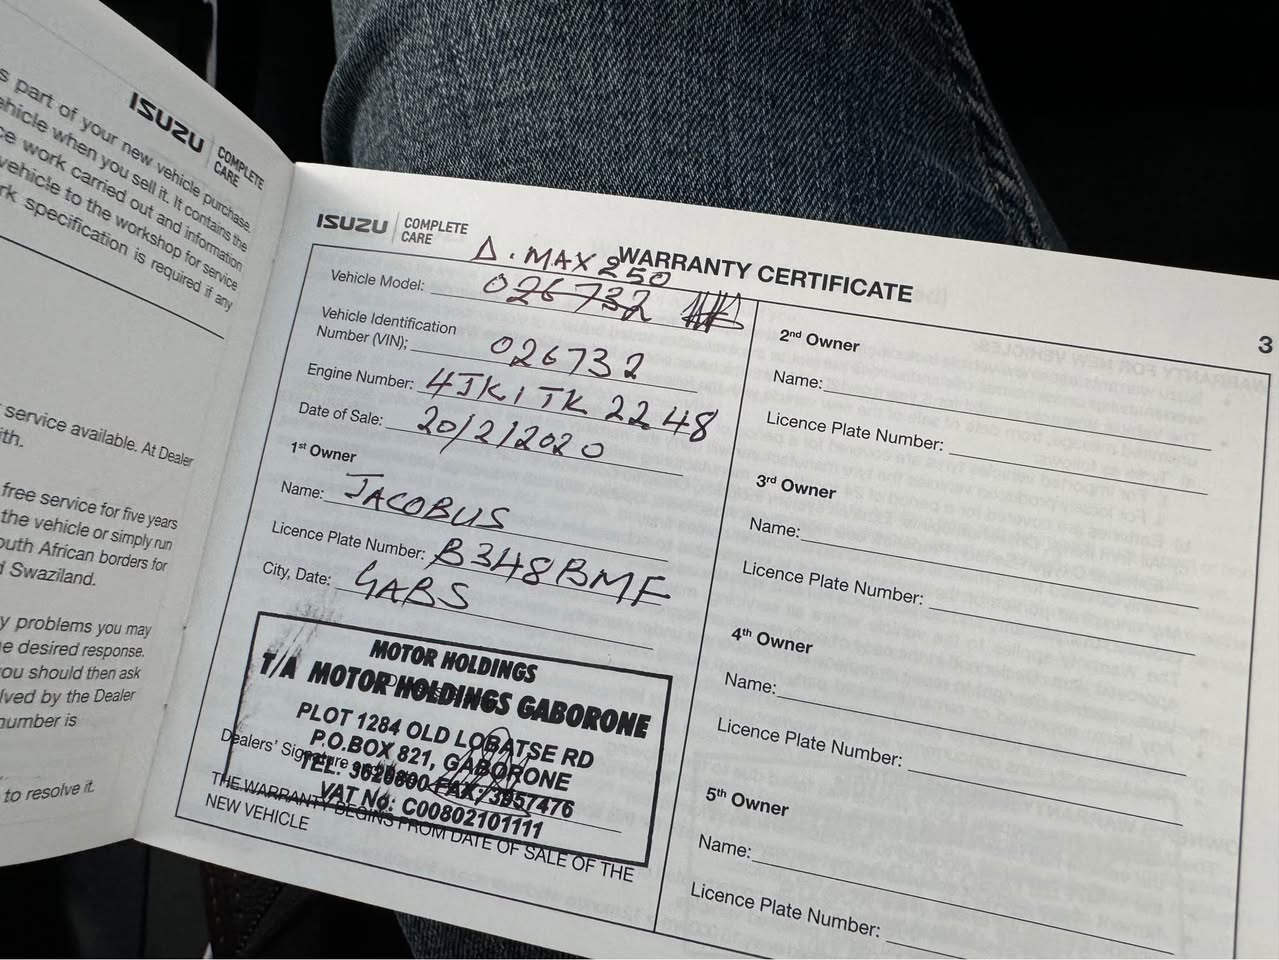 ISUZU COMPLETE CARE
s part of your new vehicle purchase.
ehicle when you sell it. It contains the
ce work carried out and information
vehicle to the workshop for service
rk specification is required if any
service available. At Dealer
ith.
free service for five years
the vehicle or simply run
outh African borders for
d Swaziland.
y problems you may
e desired response.
ou should then ask
lved by the Dealer
number is
to resolve it.
ISUZU COMPLETE CARE
WARRANTY CERTIFICATE
3
D.MAX 250
Vehicle Model: 026732
Vehicle Identification
Number (VIN); 026732
Engine Number: 4JK1TK2248
Date of Sale: 20/2/2020
1st Owner
Name: JACOBUS
Licence Plate Number: B348BMF
City, Date: GABS
MOTOR HOLDINGS
T/A MOTOR HOLDINGS GABORONE
PLOT 1284 OLD LOBATSE RD
P.O.BOX 821, GABORONE
Dealers' Signature
VAT No: C00802101111
THE WARRANTY BEGINS FROM DATE OF SALE OF THE
NEW VEHICLE
2nd Owner
Name:
Licence Plate Number:
3rd Owner
Name:
Licence Plate Number:
4th Owner
Name:
Licence Plate Number:
5th Owner
Name:
Licence Plate Number: